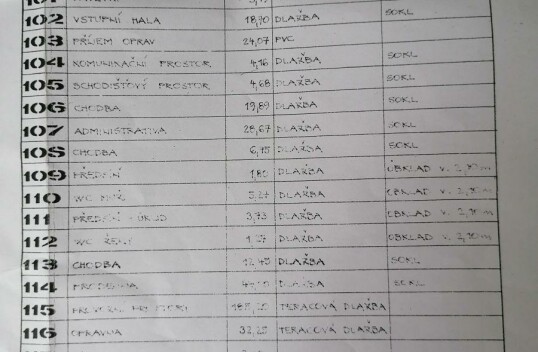 102 VSTUPNÍ HALA 18,70 DLAŽBA SOKL
103 PŘÍJEM OPRAV 24,07 PVC
104 KOMUNIKAČNÍ PROSTOR 4,16 DLAŽBA SOKL
105 SCHODIŠŤOVÝ PROSTOR 4,68 DLAŽBA SOKL
106 CHODBA 19,89 DLAŽBA SOKL
107 ADMINISTRATIVA 28,67 DLAŽBA SOKL
108 CHODBA DLAŽBA SOKL
109 PŘEDSÍŇ 1,80 DLAŽBA OBKLAD V.
110 WC DLAŽBA OBKLAD V.
111 3,73 DLAŽBA OBKLAD V.
112 WC ŽENY DLAŽBA OBKLAD V.
113 CHODBA DLAŽBA SOKL
114 PRODEJNA DLAŽBA SOKL
115 TERACOVÁ DLAŽBA
116 OPRAVNA TERACOVÁ DLAŽBA